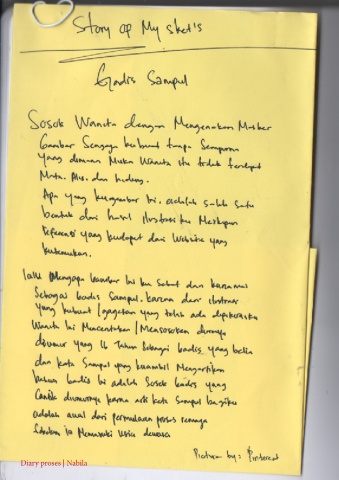 Story of My sket's
Gadis Sampul
Sosok Wanita dengan Mengenakan Masker
Gambar Sengaja ku buat tanpa Sempurna
yang dimana Muka Wanita itu tidak terdapat
Mata, Alis, dan hidung.
Apa yang kugambar ini, adalah salah satu
bentuk dari hasil ilustrasi ku Meskipun
Referensi yang kudapat dari Website yang
kutemukan.
lalu Mengapa Gambar Ini ku Sebut dan kunamai
Sebagai Gadis Sampul. karena dari ilustrasi
yang kubuat / gagasan yang telah ada dipikiranku
Wanita Ini Mencerminkan / Mensosokan dirinya
diumur yang 16 Tahun Sebagai Gadis yang belia
dan kata Sampul yang kuambil Mengartikan
bahwa Gadis Ini adalah Sosok Gadis yang
Cantik diumurnya karna arti kata Sampul bagiku
adalah awal dari permulaan proses remaja
Sebelum ia Memasuki Usia dewasa
Picture by: Pinterest
Diary proses | Nabila